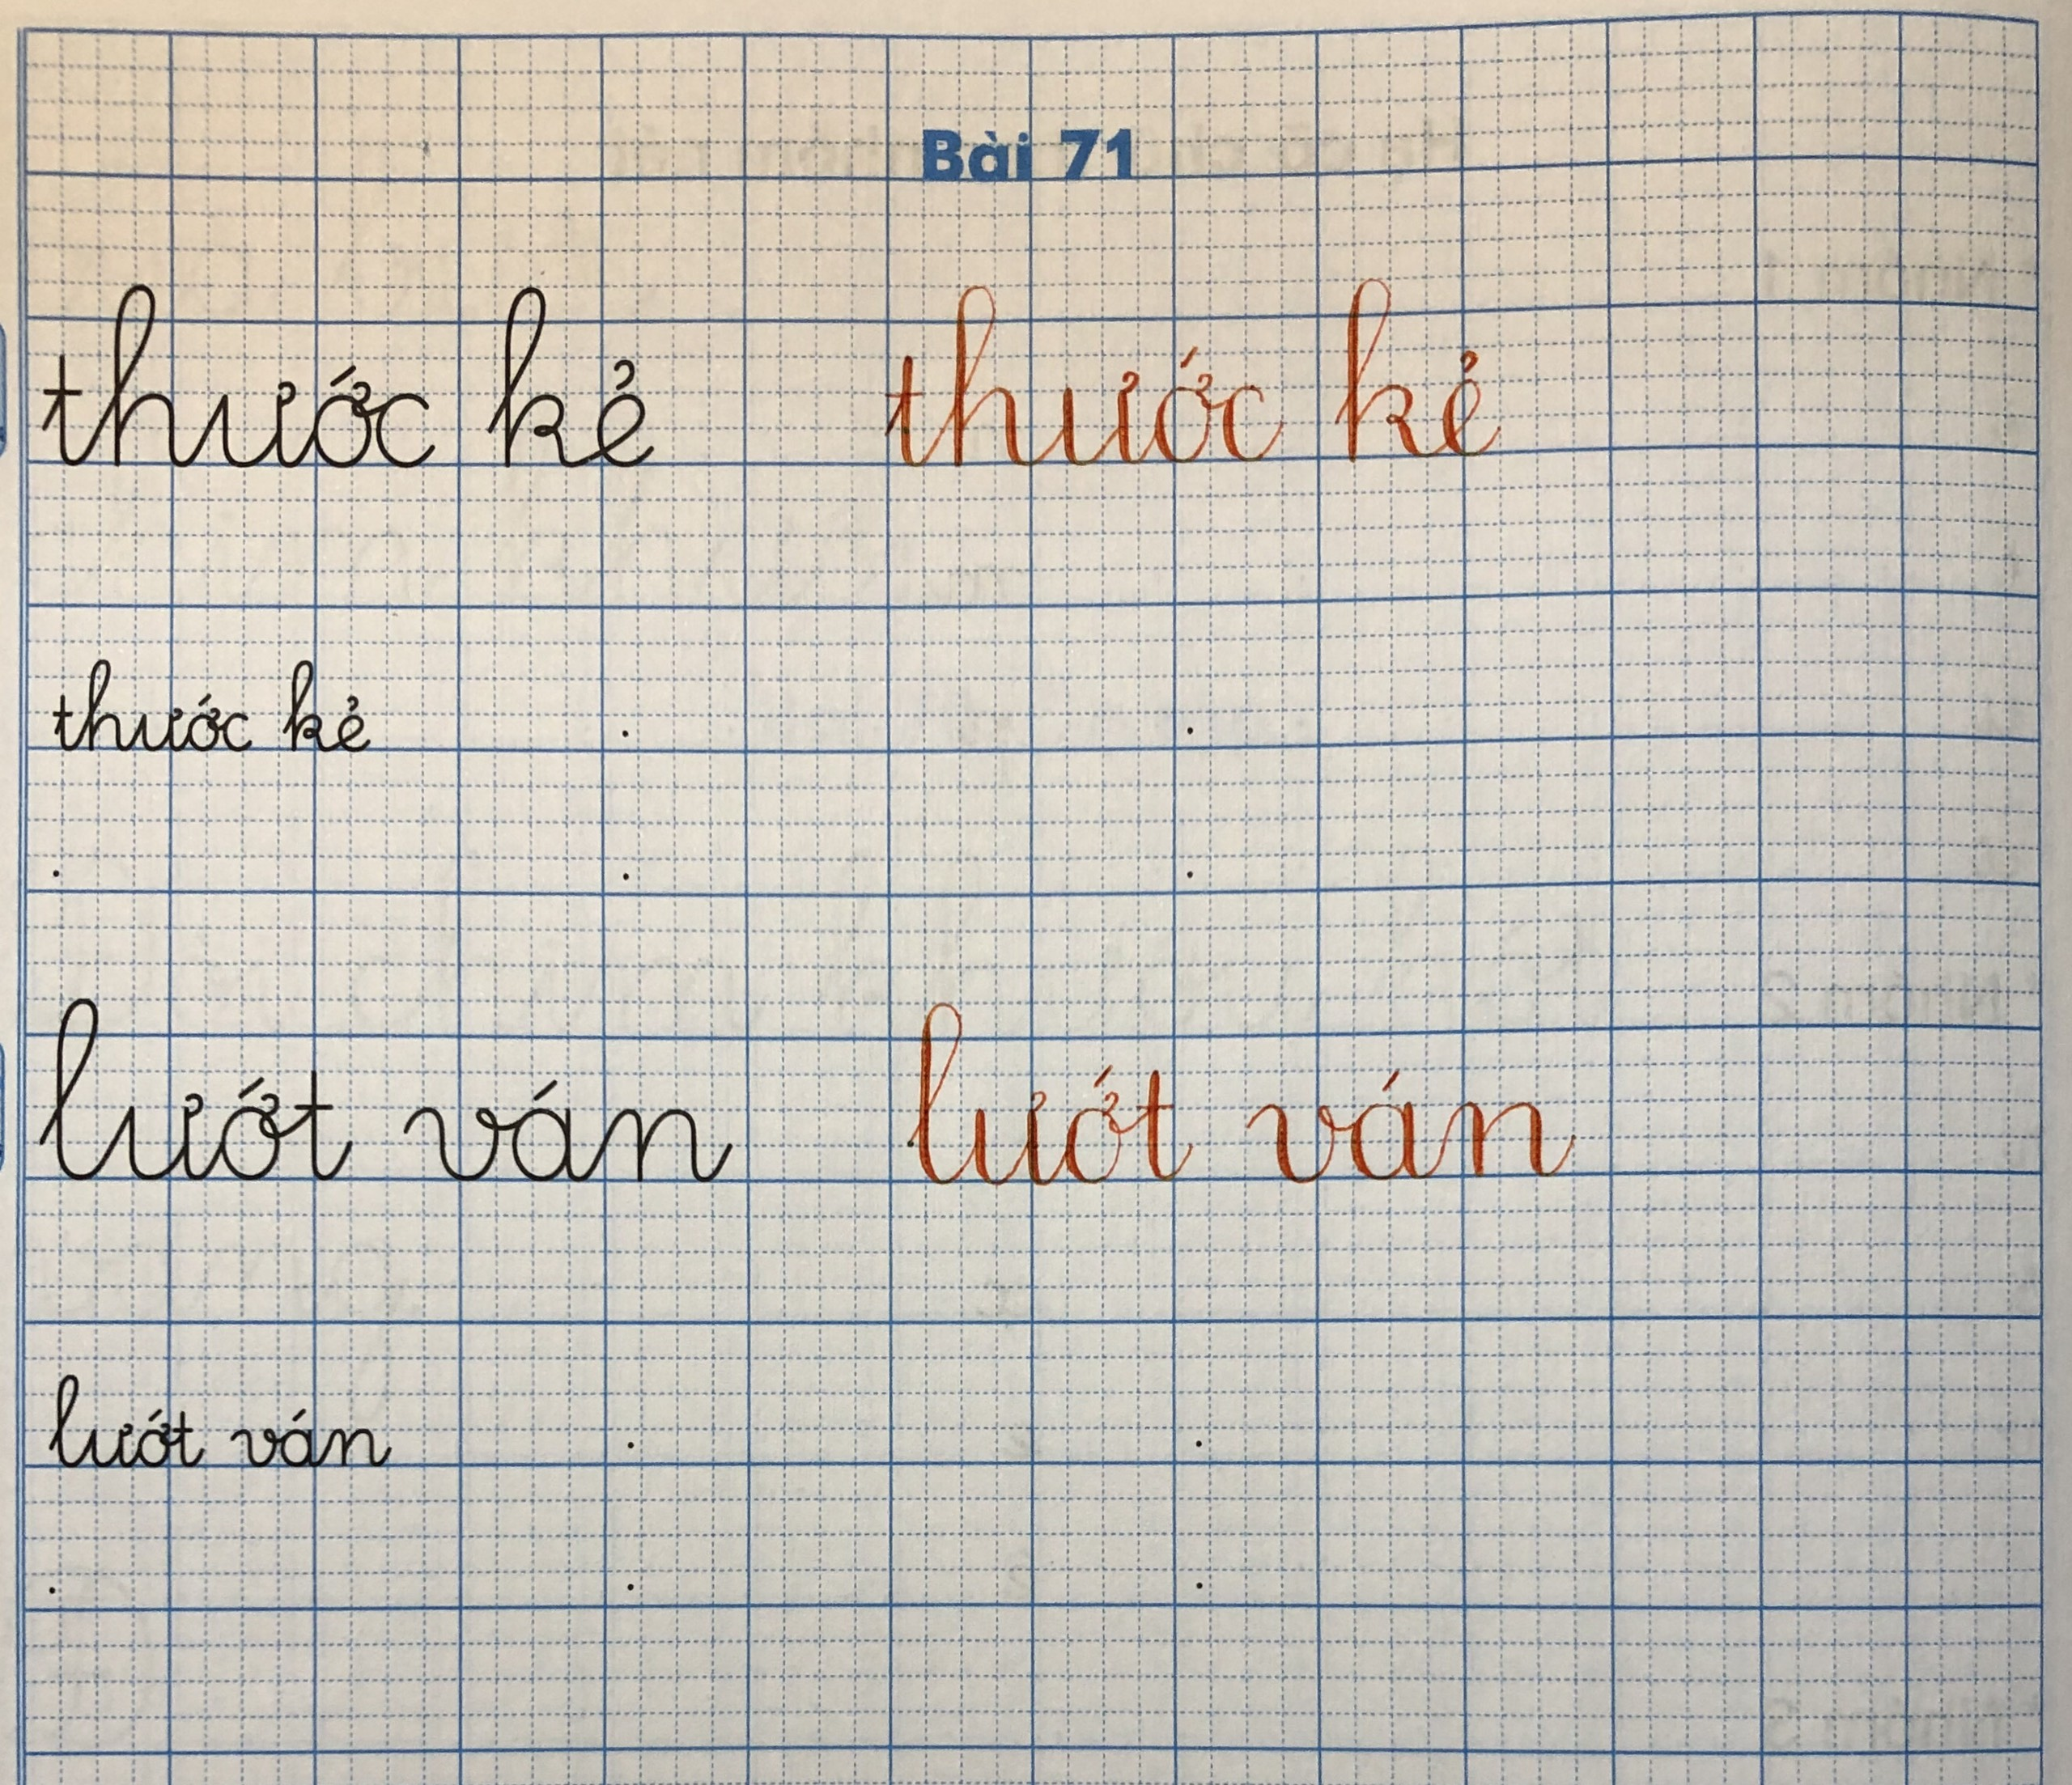 Bài 71
thước kẻ thước kẻ
thước kẻ
lướt ván lướt ván
lướt ván